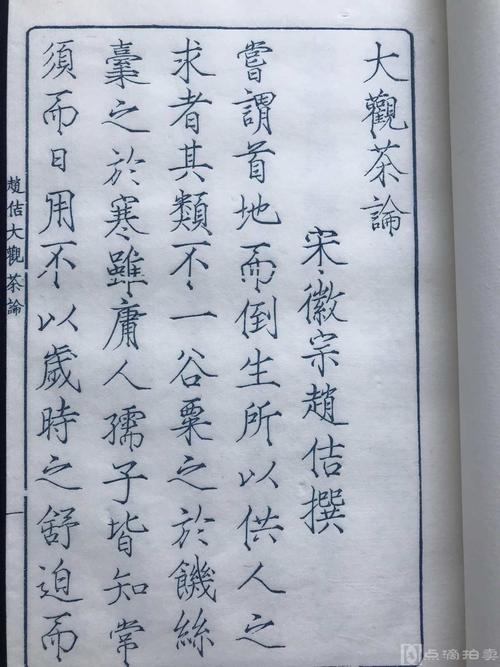 大觀茶論
宋徽宗趙佶撰
嘗謂首地而倒生所以供人之
求者其類不一谷粟之於饑絲
枲之於寒雖庸人孺子皆知常
須而日用不以歲時之舒迫而
趙佶大觀茶論
一
点滴拍卖